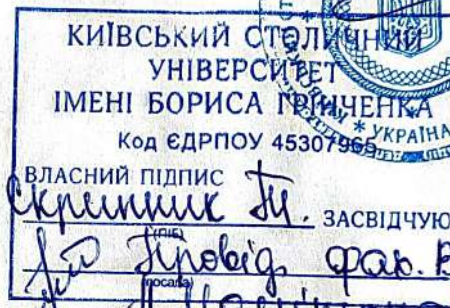 КИЇВСЬКИЙ СТОЛИЧНИЙ
УНІВЕРСИТЕТ
ІМЕНІ БОРИСА ГРІНЧЕНКА
* УКРАЇНА
Код ЄДРПОУ 45307965
ВЛАСНИЙ ПІДПИС
Скрипник Т. ЗАСВІДЧУЮ
(ПІБ)
Провід. фах.
(посада)